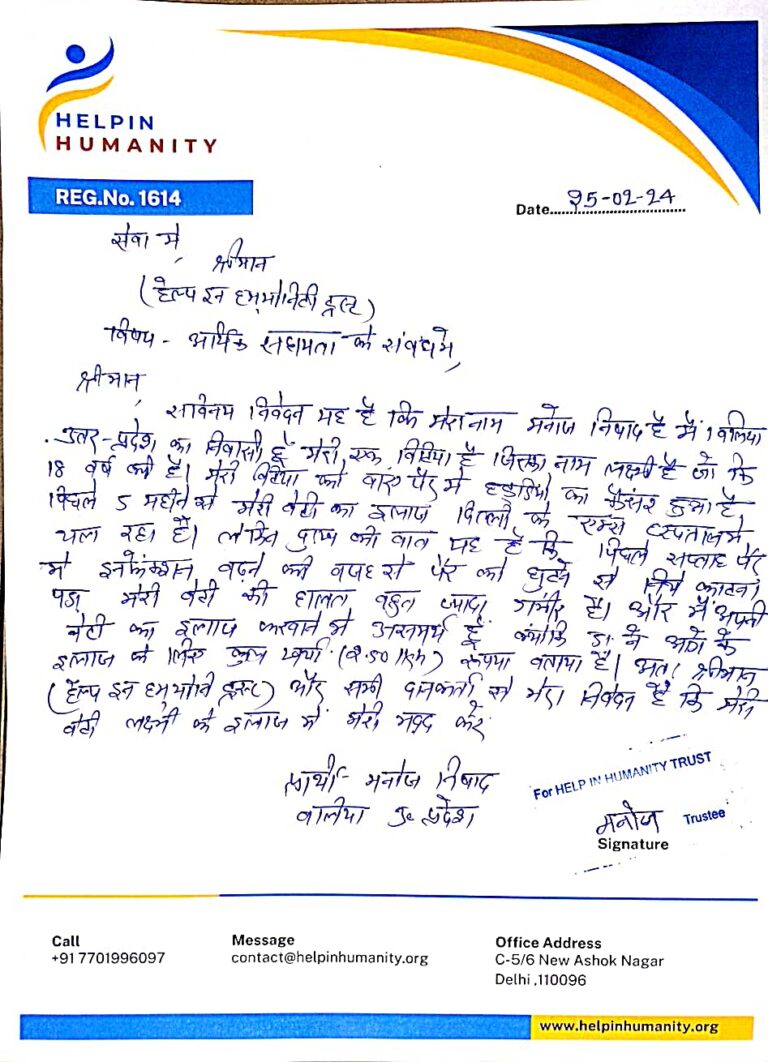 HELPIN
HUMANITY
REG.No. 1614
Date 25-02-24
सेवा में,
श्रीमान
(हेल्प इन हम्युनिटी ट्रस्ट)
विषय - आर्थिक सहायता के संबंध में,
श्रीमान,
सविनय निवेदन यह है कि मेरा नाम मनोज निषाद है मैं बलिया
उत्तर-प्रदेश का निवासी हूँ मेरी एक बिटिया है जिसका नाम लक्ष्मी है जो कि
18 वर्ष की है। मेरी बिटिया को बाएं पैर में हड्डियों का कैंसर हुआ है
पिछले 5 महीने से मेरी बेटी का इलाज दिल्ली के एम्स हस्पताल में
चल रहा है। लेकिन दुःख की बात यह है कि पिछले सप्ताह पैर
में इन्फेक्शन बढ़ने की वजह से पैर को घुटने से नीचे काटना
पड़ा मेरी बेटी की हालत बहुत ज्यादा गंभीर है। और मैं अपनी
बेटी का इलाज करवाने में असमर्थ हूँ क्योंकि डा. ने आगे के
इलाज के लिए कुल खर्चा (2.50 लाख) रूपया बताया है। अतः श्रीमान
(हेल्प इन हम्युनिटी ट्रस्ट) और सभी दानकर्ता से मेरा निवेदन है कि मेरी
बेटी लक्ष्मी के इलाज में मेरी मदद करें
प्रार्थी - मनोज निषाद
बलिया उ. प्रदेश
For HELP IN HUMANITY TRUST
मनोज Trustee
Signature
Call
+91 7701996097
Message
contact@helpinhumanity.org
Office Address
C-5/6 New Ashok Nagar
Delhi ,110096
www.helpinhumanity.org